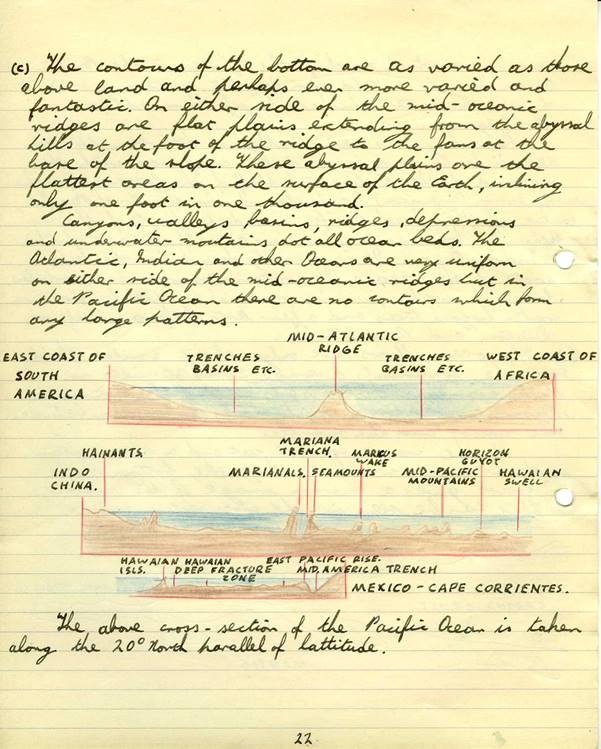 (c) The contours of the bottom are as varied as those
above land and perhaps even more varied and
fantastic. On either side of the mid-oceanic
ridges are flat plains extending from the abyssal
hills at the foot of the ridge to the fans at the
base of the slope. These abyssal plains are the
flattest areas on the surface of the Earth, inclining
only one foot in one thousand.
Canyons, valleys basins, ridges, depressions
and underwater mountains dot all ocean beds. The
Atlantic, Indian and other Oceans are very uniform
on either side of the mid-oceanic ridges but in
the Pacific Ocean there are no contours which form
any large patterns.
MID-ATLANTIC
RIDGE
EAST COAST OF
SOUTH
AMERICA
TRENCHES
BASINS ETC.
TRENCHES
BASINS ETC.
WEST COAST OF
AFRICA
HAINANTS.
INDO
CHINA.
MARIANA
TRENCH.
MARIANALS.
SEAMOUNTS
MARKUS
WAKE
MID-PACIFIC
MOUNTAINS
HORIZON
GUYOT
HAWAIAN
SWELL
HAWAIAN
ISLS.
HAWAIIAN
DEEP
FRACTURE
ZONE
EAST PACIFIC RISE.
MID. AMERICA TRENCH
MEXICO - CAPE CORRIENTES.
The above cross-section of the Pacific Ocean is taken
along the 20° North parallel of lattitude.
22